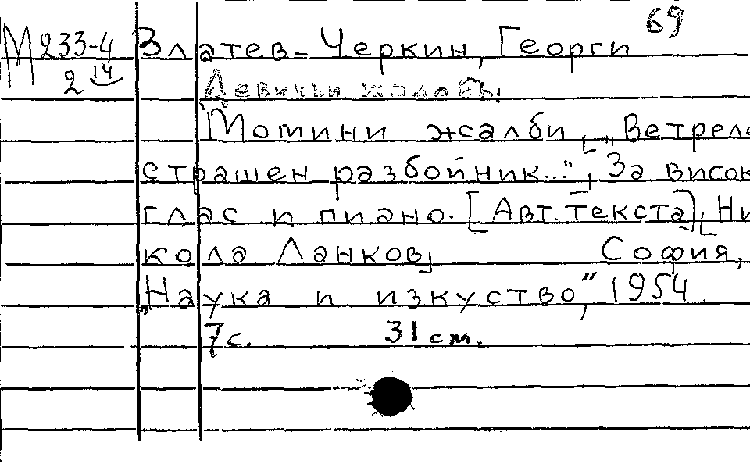 69
М 233-4 Златев-Черкин, Георги
2 14
Девичи жалобы.
Момини жалби „Ветреле
страшен разбойник...", За висок
глас и пиано. [Авт. текста], Ни
кола Ланков] София,
„Наука и изкуство", 1954.
7с. 31 см.